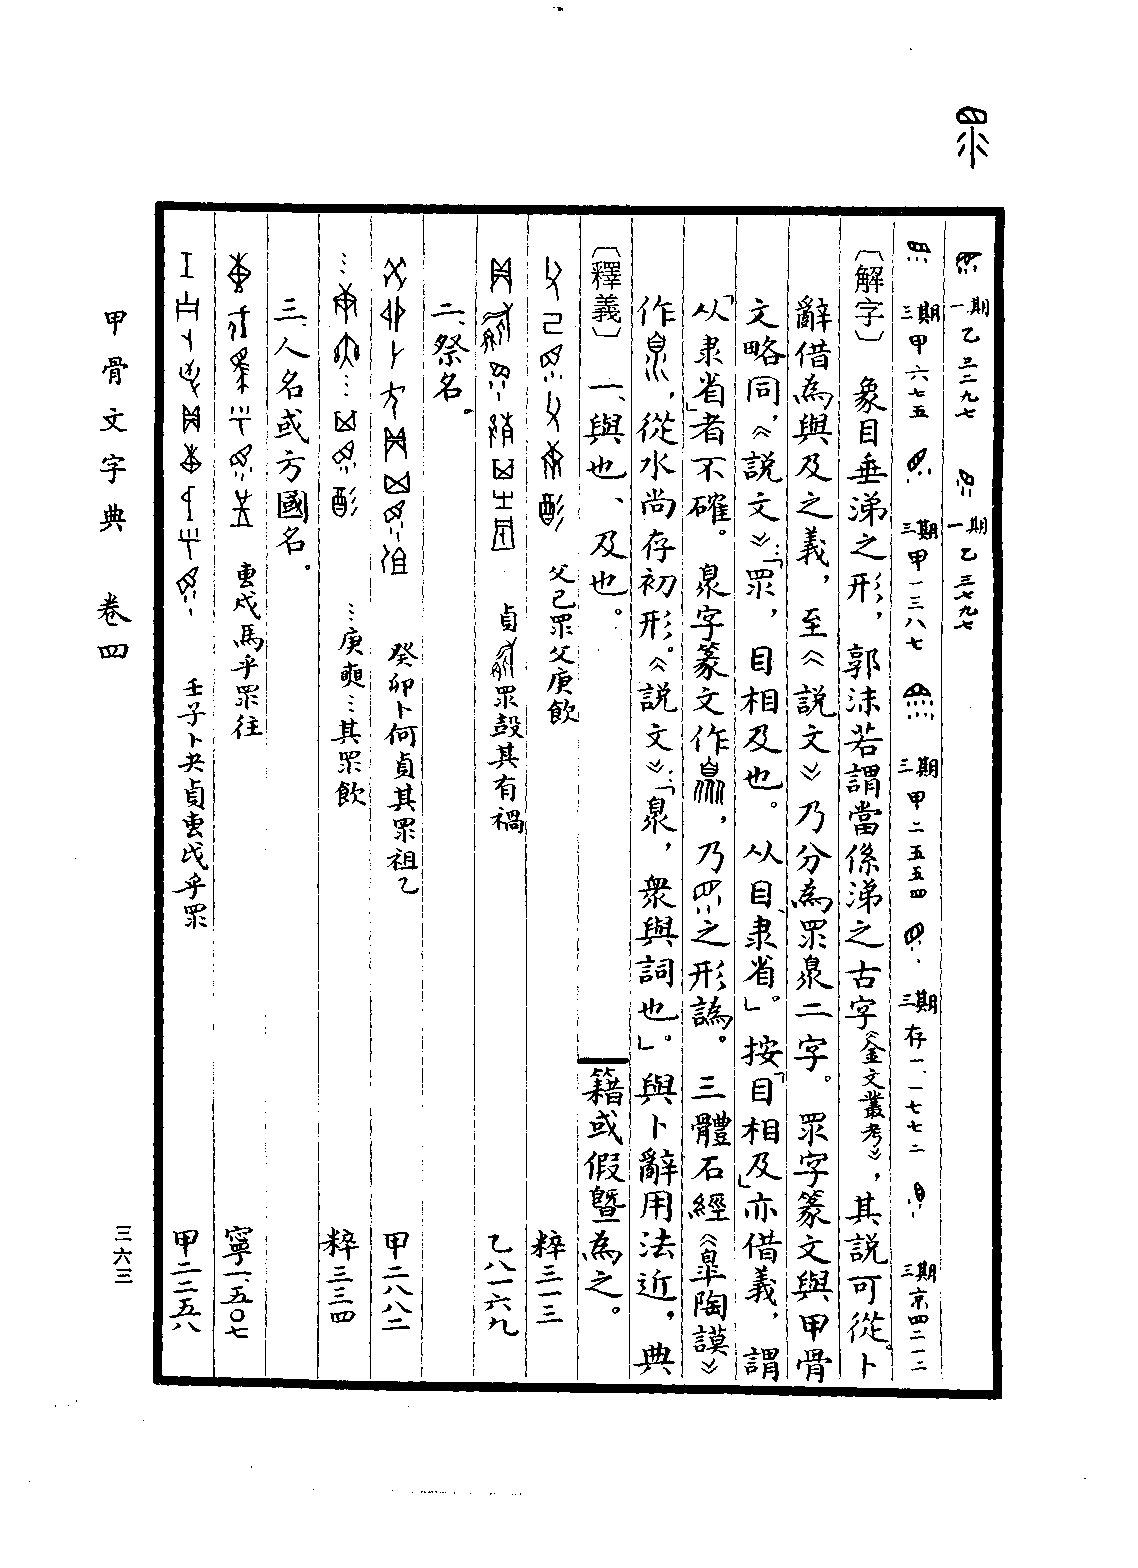 眔
一期 乙三二九七 一期 乙三七九七
三期 甲六七五 三期 甲一三八七 三期 甲二五五四 三期 存一.一七七二 三期 京四二一二
〔解字〕 象目垂涕之形，郭沫若謂當係涕之古字《金文叢考》，其說可從。卜
辭借為與及之義，至《說文》乃分為眔臮二字。眔字篆文與甲骨
文略同，《說文》：「眔，目相及也。从目，隶省」。按「目相及」亦借義，謂
「从隶省」者不確。臮字篆文作，乃之形譌。三體石經《皋陶謨》
作，從水尚存初形。《說文》：「臮，衆與詞也」。與卜辭用法近，典
〔釋義〕 一、與也、及也。 籍或假曁為之。
父己眔父庚飲 粹三一三
貞眔㱿其有禍 乙八一六九
二、祭名。
癸卯卜何貞其眔祖乙 甲二八八二
…庚奭…其眔飲 粹三三四
三、人名或方國名。
叀戍馬乎眔往 寧一.五〇七
壬子卜㱿貞叀戍乎眔 甲二二五八
甲骨文字典 卷四 三六三